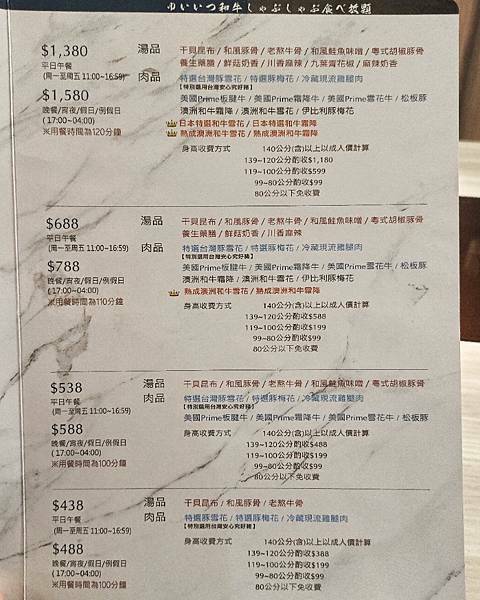 市いいつ和牛しゃぶしゃぶ食べ放題
$1,380
平日午餐
(周一至周五 11:00~16:59)
$1,580
晚餐/宵夜/假日/例假日
(17:00~04:00)
※用餐時間為120分鐘
湯品 干貝昆布 / 和風豚骨 / 老熬牛骨 / 和風鮭魚味噌 / 粵式胡椒豚骨
養生藥膳 / 鮮菇奶香 / 川香麻辣 / 九葉青花椒 / 麻辣奶香
肉品 特選台灣豚雪花 / 特選豚梅花 / 冷藏現流雞腿肉
【特別選用台灣安心究好豬】
美國Prime板腱牛 / 美國Prime霜降牛 / 美國Prime雪花牛 / 松板豚
澳洲和牛霜降 / 澳洲和牛雪花 / 伊比利豚梅花
日本特選和牛雪花 / 日本特選和牛霜降
熟成澳洲和牛雪花 / 熟成澳洲和牛霜降
身高收費方式 140公分(含)以上以成人價計算
139~120公分酌收$1,180
119~100公分收$599
99~80公分酌收$99
80公分以下免收費
$688
平日午餐
(周一至周五 11:00~16:59)
$788
晚餐/宵夜/假日/例假日
(17:00~04:00)
※用餐時間為110分鐘
湯品 干貝昆布 / 和風豚骨 / 老熬牛骨 / 和風鮭魚味噌 / 粵式胡椒豚骨
養生藥膳 / 鮮菇奶香 / 川香麻辣
肉品 特選台灣豚雪花 / 特選豚梅花 / 冷藏現流雞腿肉
【特別選用台灣安心究好豬】
美國Prime板腱牛 / 美國Prime霜降牛 / 美國Prime雪花牛 / 松板豚
澳洲和牛霜降 / 澳洲和牛雪花 / 伊比利豚梅花
熟成澳洲和牛雪花 / 熟成澳洲和牛霜降
身高收費方式 140公分(含)以上以成人價計算
139~120公分酌收$588
119~100公分酌收$199
99~80公分酌收$99
80公分以下免收費
$538
平日午餐
(周一至周五 11:00~16:59)
$588
晚餐/宵夜/假日/例假日
(17:00~04:00)
※用餐時間為100分鐘
湯品 干貝昆布 / 和風豚骨 / 老熬牛骨 / 和風鮭魚味噌 / 粵式胡椒豚骨
肉品 特選台灣豚雪花 / 特選豚梅花 / 冷藏現流雞腿肉
【特別選用台灣安心究好豬】
美國Prime板腱牛 / 美國Prime霜降牛 / 美國Prime雪花牛 / 松板豚
身高收費方式 140公分(含)以上以成人價計算
139~120公分酌收$488
119~100公分酌收$199
99~80公分酌收$99
80公分以下免收費
$438
平日午餐
(周一至周五 11:00~16:59)
$488
晚餐/宵夜/假日/例假日
(17:00~04:00)
※用餐時間為100分鐘
湯品 干貝昆布 / 和風豚骨 / 老熬牛骨
肉品 特選豚雪花 / 特選豚梅花 / 冷藏現流雞腿肉
【特別選用台灣安心究好豬】
身高收費方式 140公分(含)以上以成人價計算
139~120公分酌收$388
119~100公分酌收$199
99~80公分酌收$99
80公分以下免收費